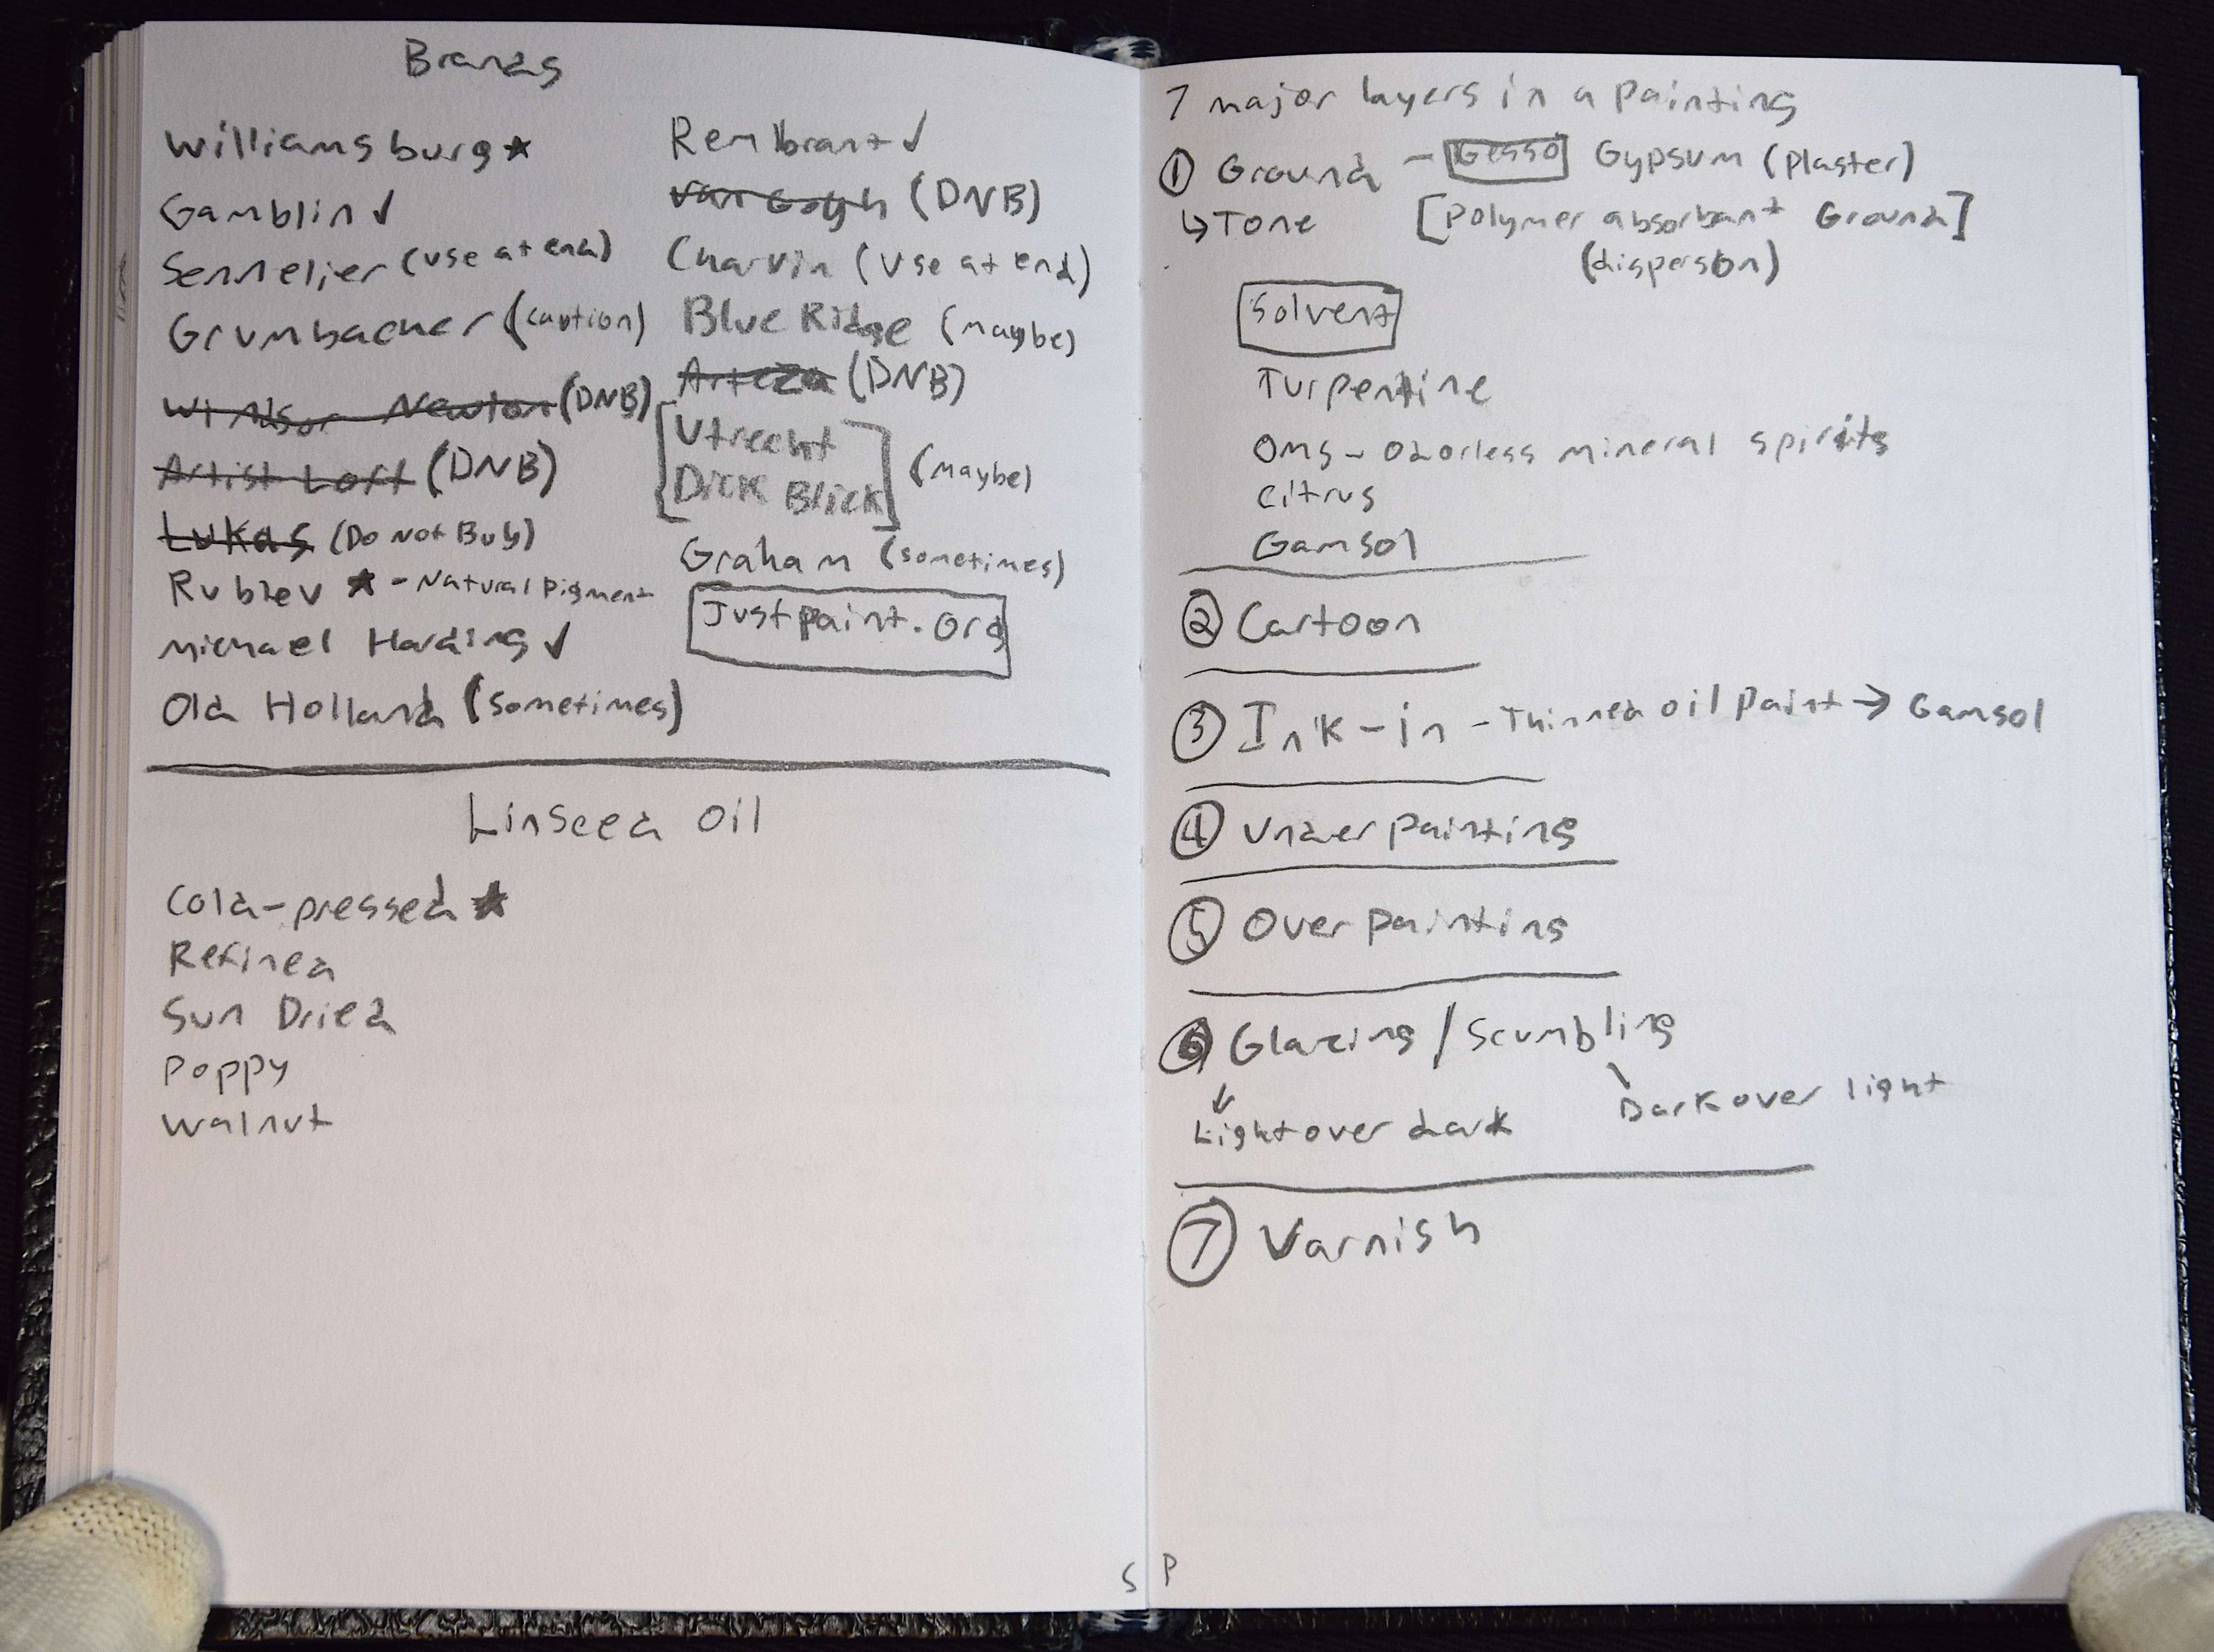 Brands
Williamsburg ★
Gamblin ✓
Sennelier (use at end)
Grumbacher (caution)
Winsor Newton (DNB)
Artist Loft (DNB)
Lukas (Do Not Buy)
Rublev ★ - Natural Pigment
Michael Harding ✓
Old Holland (sometimes)
Rembrant ✓
Van Gogh (DNB)
Charvin (Use at end)
Blue Ridge (maybe)
Arteza (DNB)
[Utrecht
Dick Blick] (maybe)
Graham (sometimes)
Justpaint.org
Linseed Oil
Cold-pressed ★
Refined
Sun Dried
Poppy
Walnut
S
7 major layers in a painting
① Ground - Gesso Gypsum (plaster)
↳ Tone [Polymer absorbant Ground]
(disperson)
Solvent
Turpentine
OMS - Odorless mineral spirits
Citrus
Gamsol
② Cartoon
③ Ink-in - Thinned oil paint → Gamsol
④ Underpainting
⑤ Overpainting
⑥ Glazing / Scumbling
Light over dark
Dark over light
⑦ Varnish
P